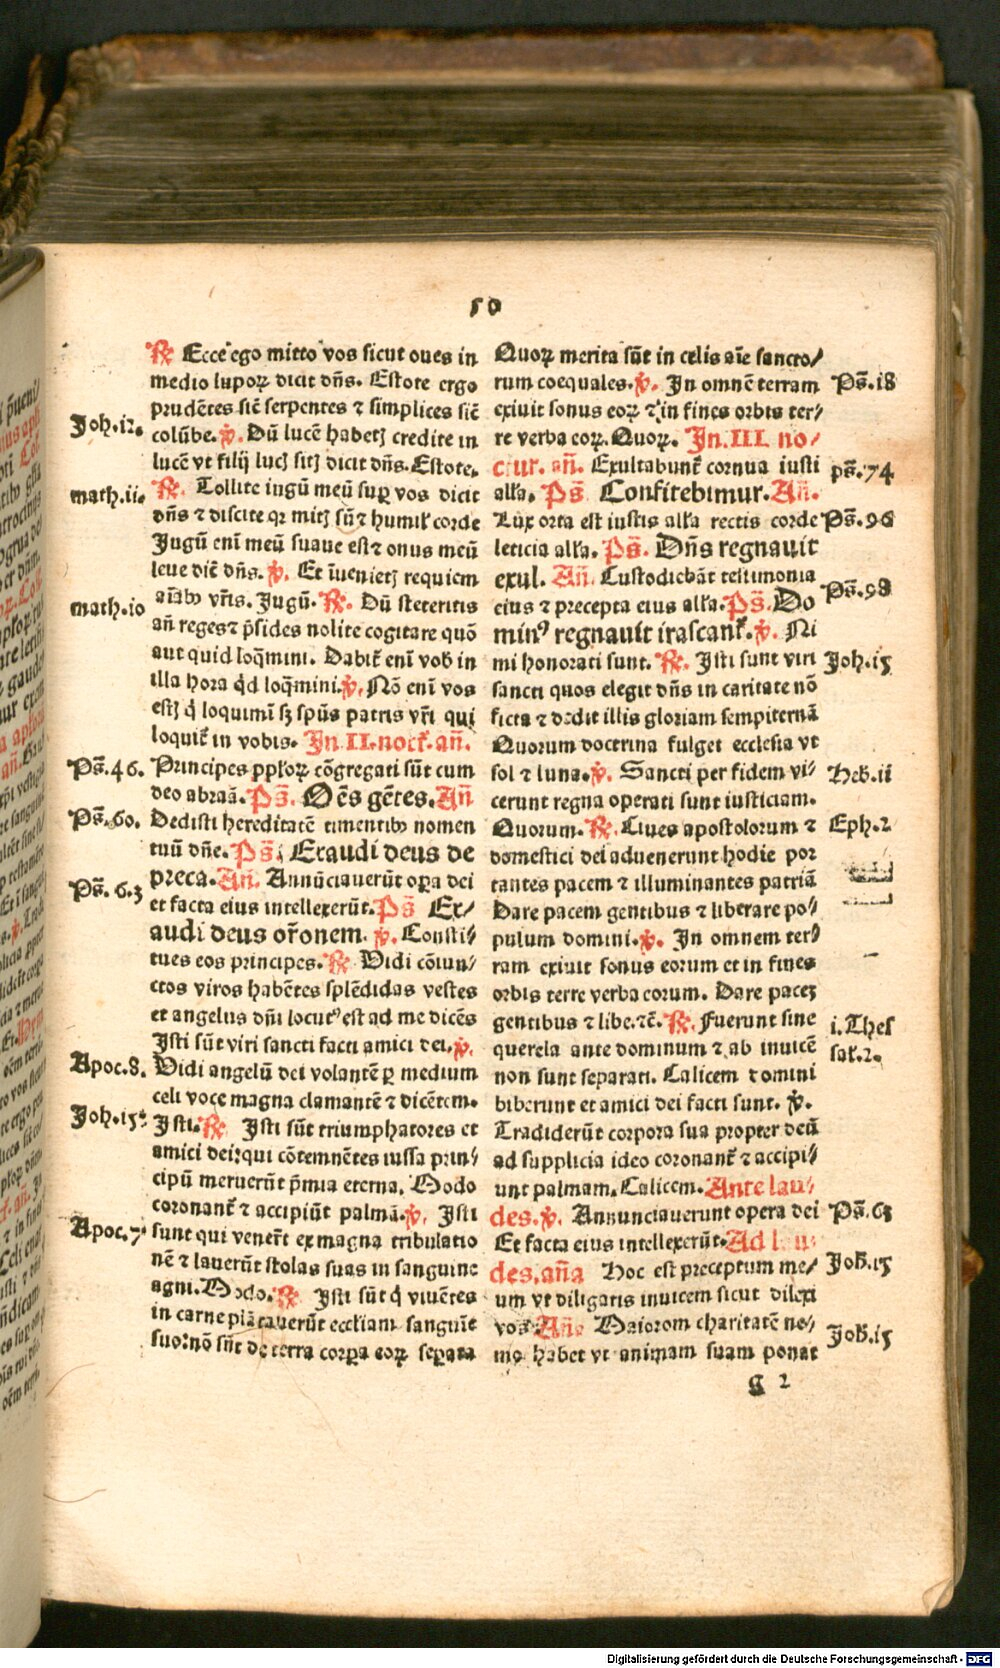 50
℟ Ecce ego mitto vos sicut oues in
medio lupoꝝ dicit dn̄s. Estote ergo
prudētes sic̄ serpentes ⁊ simplices sic̄
colūbe. ℣. Dū lucē habetꝭ credite in
lucē vt filij lucꝭ sitꝭ dicit dn̄s. Estote.
℟. Tollite iugū meū suꝑ vos dicit
dn̄s ⁊ discite qꝛ mitꝭ sū ⁊ humił corde
Jugū enī meū suaue est ⁊ onus meū
leue dic̄ dn̄s. ℣. Et īuenietꝭ requiem
aīabꝰ vr̄is. Jugū. ℟. Dū steteritis
an̄ reges ⁊ p̄sides nolite cogitare quō
aut quid loq̄mini. Dabit̄ enī vob̄ in
illa hora qd̄ loq̄mini. ℣. Nō enī vos
estꝭ q̄ loquimī sꝫ spūs patris vr̄i qui
loquit̄ in vobis. Jn II. noct̄. an̄.
Principes pp̄loꝝ cōgregati sūt cum
deo abraā. Ps̄. Oēs gētes. An̄
Dedisti hereditatē timentibꝰ nomen
tuū dn̄e. Ps̄. Exaudi deus de
preca. An̄. Annūciauerūt oꝑa dei
et facta eius intellexerūt. Ps̄ Ex⸗
audi deus or̄onem. ℣. Consti⸗
tues eos principes. ℟ Vidi cōiun⸗
ctos viros habētes splēdidas vestes
et angelus dn̄i locutꝰ est ad me dicēs
Jsti sūt viri sancti facti amici dei. ℣.
Vidi angelū dei volantē ꝑ medium
celi voce magna clamantē ⁊ dicētem.
Jsti. ℟. Jsti sūt triumphatores et
amici dei: qui cōtemnētes iussa prin⸗
cipū meruerūt p̄mia eterna. Modo
coronant̄ ⁊ accipiūt palmā. ℣. Jsti
sunt qui venerūt ex magna tribulatio
nē ⁊ lauerūt stolas suas in sanguine
agni. Modo. ℟ Jsti sūt q̄ viuētes
in carne plātauerūt eccłiam sanguīe
suo: nō sūt de terra corꝑa eoꝝ seꝑata
Joh.12.
math.ii.
math.10
Ps̄.46.
Ps̄.60.
Ps̄.63
Apoc.8.
Joh.15.
Apoc.7
Quoꝝ merita sūt in celis aīe sancto⸗
rum coequales. ℣. Jn omnē terram
exiuit sonus eoꝝ ⁊ in fines orbis ter⸗
re verba eoꝝ. Quoꝝ. Jn. III. no⸗
ctur. an̄. Exultabunt̄ cornua iusti
ałła. Ps̄ Confitebimur. An̄.
Lux orta est iustis ałła rectis corde
leticia ałła. Ps̄. Dn̄s regnauit
exul. An̄. Custodiebāt testimonia
eius ⁊ precepta eius ałła. Ps̄. Do
minꝰ regnauit irascant̄. ℣. Ni
mi honorati sunt. ℟. Jsti sunt viri
sancti quos elegit dn̄s in caritate nō
ficta ⁊ dedit illis gloriam sempiternā
Quorum doctrina fulget ecclesia vt
sol ⁊ luna. ℣. Sancti per fidem vi⸗
cerunt regna operati sunt iusticiam.
Quorum. ℟. Ciues apostolorum ⁊
domestici dei aduenerunt hodie por
tantes pacem ⁊ illuminantes patriā
Dare pacem gentibus ⁊ liberare po⸗
pulum domini. ℣. Jn omnem ter⸗
ram exiuit sonus eorum et in fines
orbis terre verba eorum. Dare paceꝫ
gentibus ⁊ libe. ⁊c̄. ℟. Fuerunt sine
querela ante dominum ⁊ ab inuicē
non sunt separati. Calicem domini
biberunt et amici dei facti sunt. ℣.
Tradiderūt corpora sua propter deū
ad supplicia ideo coronant̄ ⁊ accipi⸗
unt palmam. Calicem. Ante lau⸗
des. ℣. Annunciauerunt opera dei
Et facta eius intellexerūt. Ad lau⸗
des. an̄a Hoc est preceptum me⸗
um vt diligatis inuicem sicut dilexi
vos An̄a Maiorem charitatē ne⸗
mo habet vt animam suam ponat
Ps̄.18
ps̄.74
Ps̄.96
Ps̄.98
Joh.15
Heb.ii
Eph.2
i.Thes
sal.2.
Ps̄.63
Joh.15
Joh.15
g 2
Digitalisierung gefördert durch die Deutsche Forschungsgemeinschaft - DFG